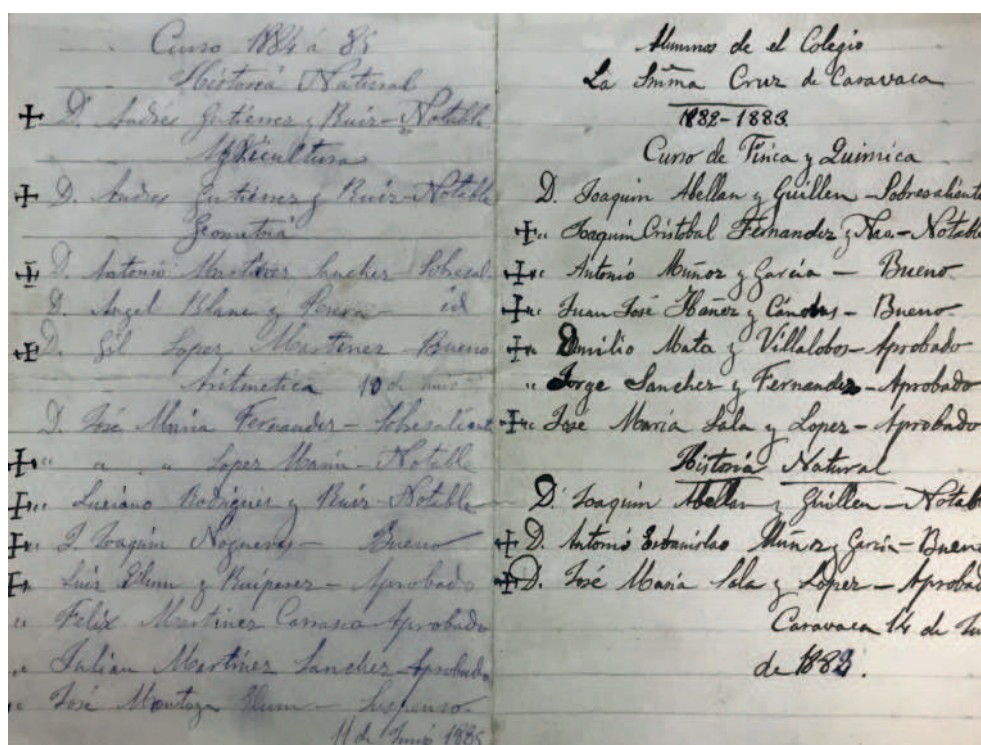 Curso 1884 á 85
Historia Natural
D. Andrés Gutierrez y Ruiz - Notable
Agricultura
D. Andres Gutierrez y Ruiz - Notable
Geometria
D. Antonio Martinez Sanchez - Sobresal
D. Angel Blanc y Perera - id
D. Gil Lopez Martinez - Bueno
Aritmetica 10 de Junio
D. José Maria Fernandez - Sobresaliente
" " " Lopez Marin - Notable
" Luciano Rodriguez y Ruiz - Notable
" J. Joaquin Nogueras - Bueno
" Luis Elum y Ruiperez - Aprobado
" Felix Martinez Carrasco Aprobado
" Julian Martinez Sanchez - Aprobado
" José Mendoza Elum - Suspenso.
11 de Junio 1885
Alumnos de el Colegio
La Smma Cruz de Caravaca
1882-1883.
Curso de Fisica y Quimica
D. Joaquin Abellan y Guillen - Sobresaliente
" Joaquin Cristobal Fernandez y Naa - Notable
" Antonio Muñoz y Garcia - Bueno.
" Juan José Ibáñez y Cánovas - Bueno.
" Emilio Mata y Villalobos - Aprobado
" Jorge Sanchez y Fernandez - Aprobado
" José María Sala y Lopez - Aprobado
Historia Natural
D. Joaquin Abellan y Guillen - Notabl
D. Antonio Estanislao Muñoz y Garcia - Buen
D. José Maria Sala y Lopez - Aprobad
Caravaca 14 de Ju
de 1883.